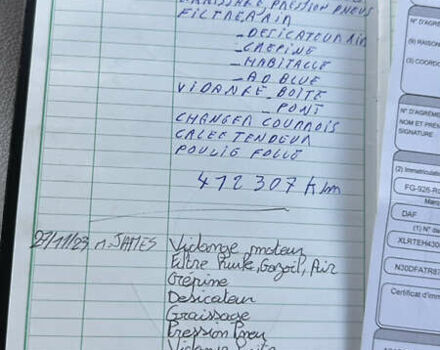 GRAISSAGE, PRESSION PNEUS
FILTRE A AIR
_ DESICATEUR AIR
_ CREPINE
_ HABITACLE
_ AD BLUE
VIDANGE _ BOITE
_ PONT
CHANGER COURROIS
GALET TENDEUR
POULIE FOLLE
412 307 Km
27/11/23 M. JAMES Vidange moteur
Filtre huile, Gazoil, Air
Crépine
Desicateur
Graissage
Pression Pneu
Vidange
N° D'AGRÉ
(9) RAISON
(3) COORDO
N° D'AGRÉME
NOM ET PRÉN
SIGNATURE
(2) Immatriculatio
FG-926-R
Marqu
DAF
(1) N° da
XLRTEH430
N30DFATR8
Certificat d'im